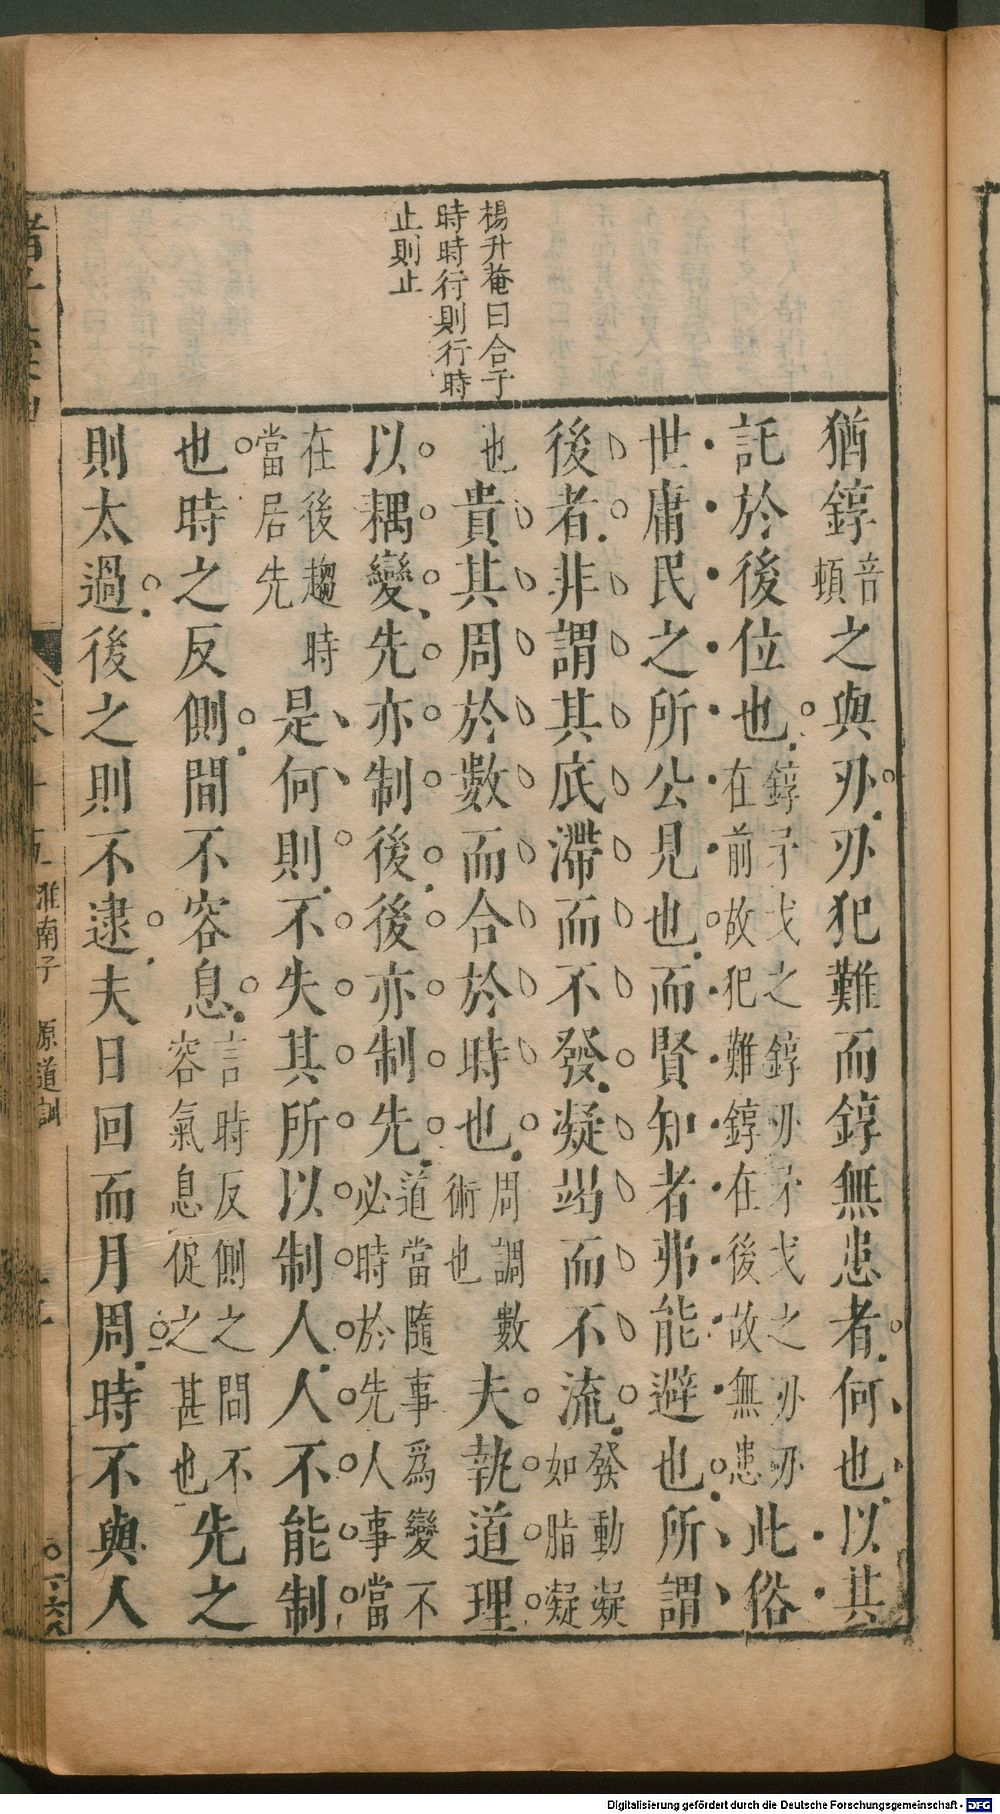 楊升菴曰合于
時時行則行時
止則止
猶錞音頓之與刃刃犯難而錞無患者何也以其
託於後位也錞矛戈之錞刃矛戈之刃刃在前故犯難錞在後故無患此俗
世庸民之所公見也而賢知者弗能避也所謂
後者非謂其底滯而不發凝竭而不流發動凝如脂凝
也貴其周於數而合於時也周調數術也夫執道理
以耦變先亦制後後亦制先道當隨事爲變不必時於先人事當
在後趨時當居先是何則不失其所以制人人不能制
也時之反側間不容息言時反側之間不容氣息促之甚也先之
則太過後之則不逮夫日回而月周時不與人
淮南子 原道訓
Digitalisierung gefördert durch die Deutsche Forschungsgemeinschaft - DFG